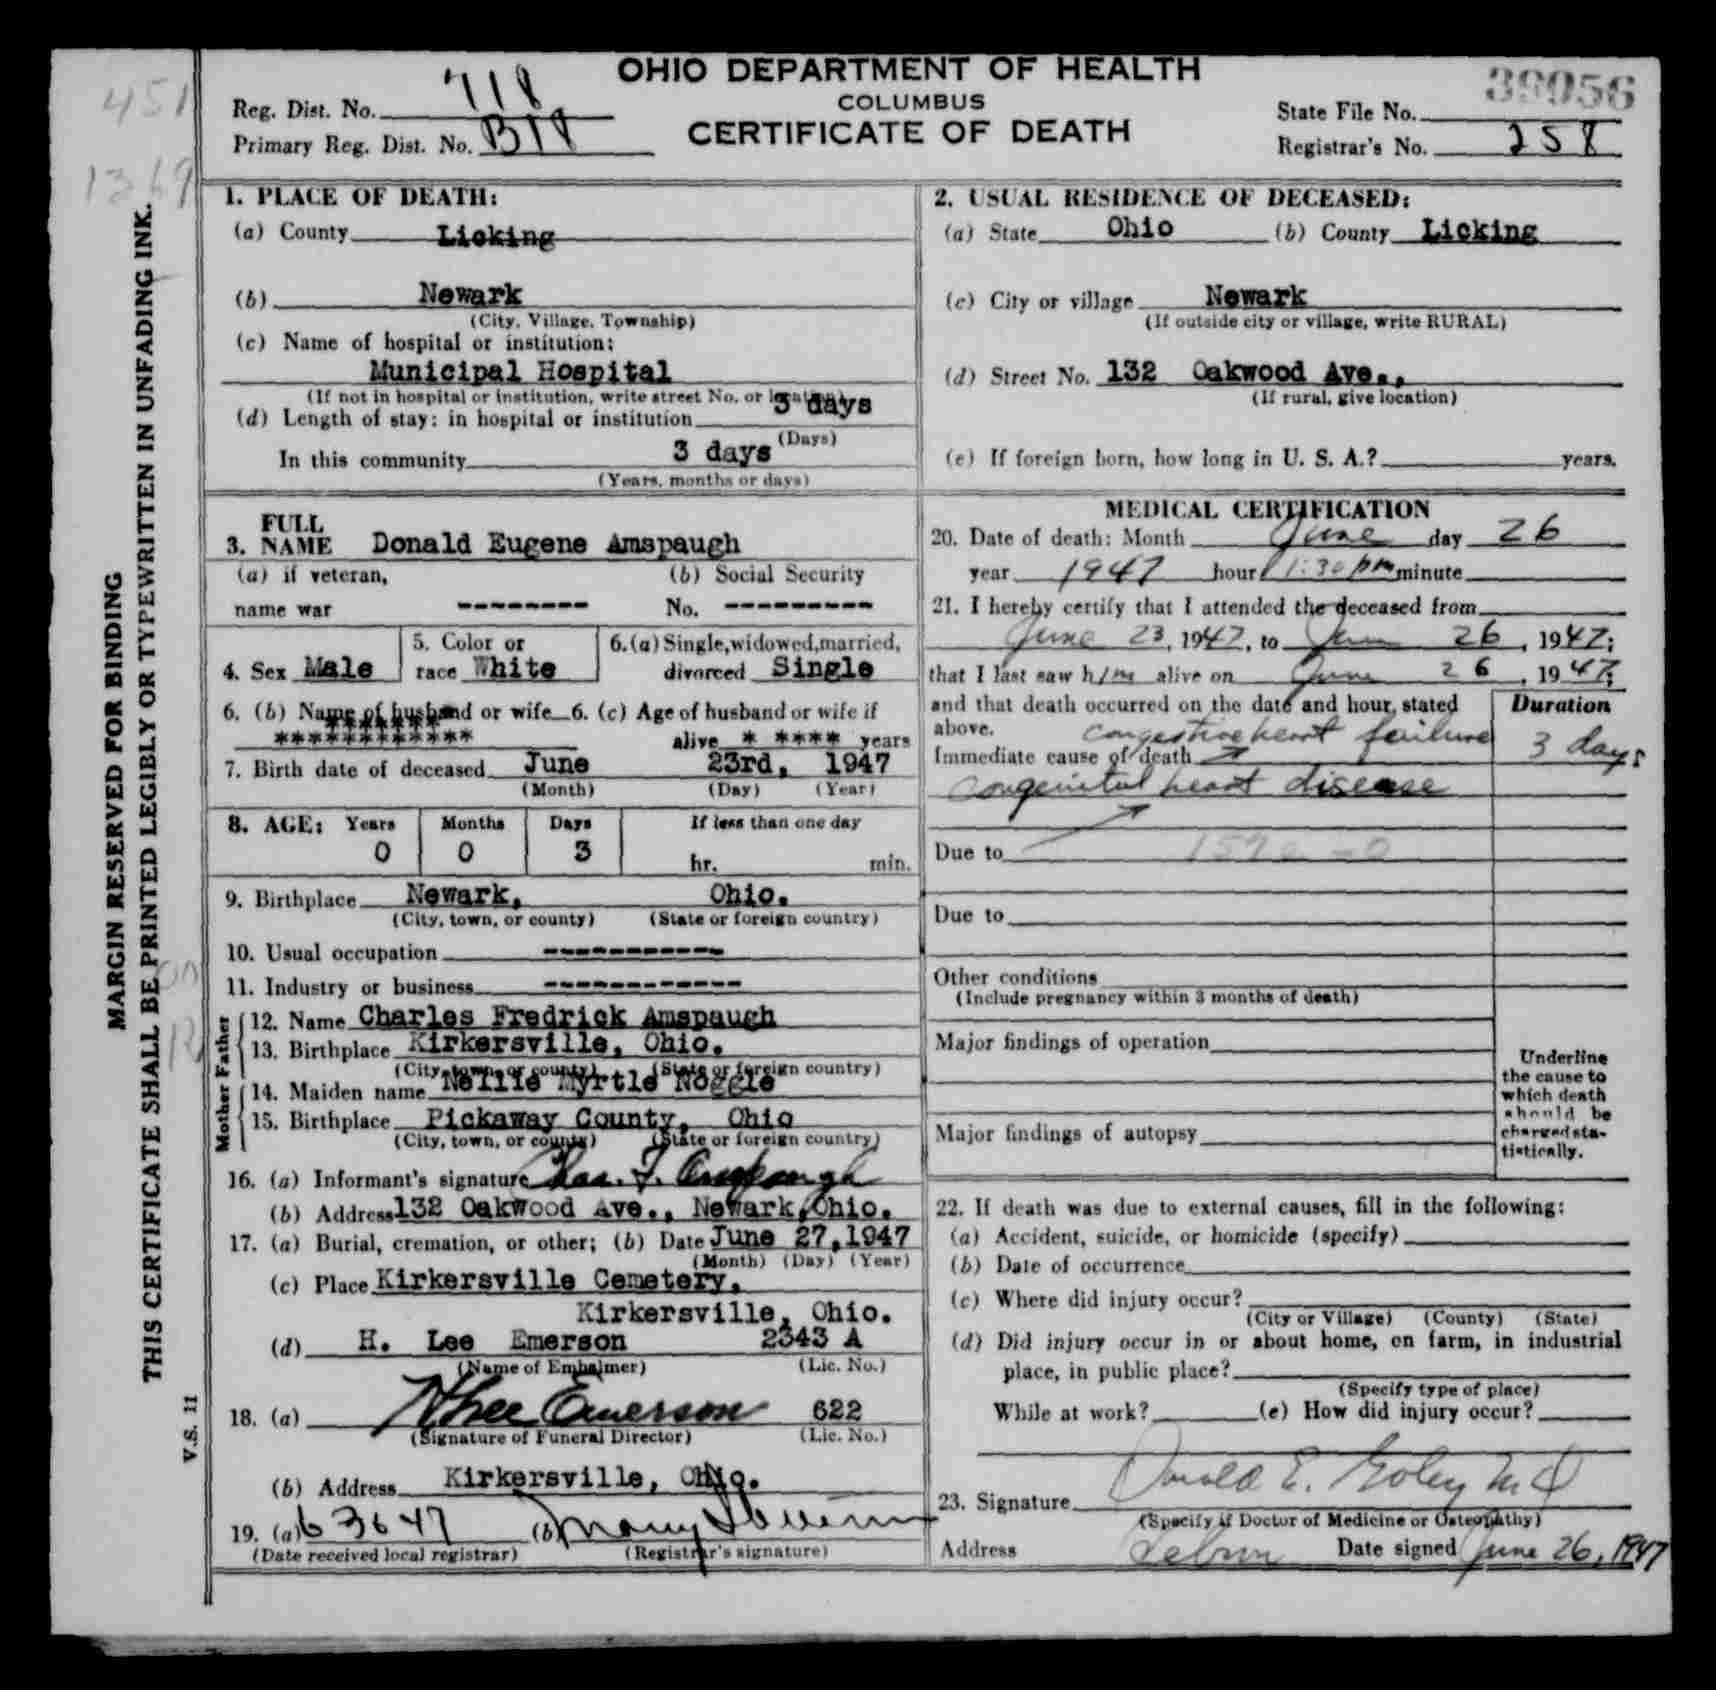 OHIO DEPARTMENT OF HEALTH
COLUMBUS
CERTIFICATE OF DEATH
Reg. Dist. No. 718
Primary Reg. Dist. No. B18
State File No. 39056
Registrar's No. 258
451
1369
MARGIN RESERVED FOR BINDING
THIS CERTIFICATE SHALL BE PRINTED LEGIBLY OR TYPEWRITTEN IN UNFADING INK.
V.S. 11
1. PLACE OF DEATH:
(a) County Licking
(b) Newark
(City, Village, Township)
(c) Name of hospital or institution:
Municipal Hospital
(If not in hospital or institution, write street No. or location)
(d) Length of stay: in hospital or institution 3 days
(Days)
In this community 3 days
(Years, months or days)
2. USUAL RESIDENCE OF DECEASED:
(a) State Ohio (b) County Licking
(c) City or village Newark
(If outside city or village, write RURAL)
(d) Street No. 132 Oakwood Ave.,
(If rural, give location)
(e) If foreign born, how long in U. S. A.? years.
3. FULL NAME Donald Eugene Amspaugh
(a) if veteran, (b) Social Security
name war --------- No. ----------
4. Sex Male 5. Color or race White 6.(a) Single, widowed, married, divorced Single
6. (b) Name of husband or wife 6. (c) Age of husband or wife if
************ alive * **** years
7. Birth date of deceased June 23rd, 1947
(Month) (Day) (Year)
8. AGE: Years Months Days If less than one day
0 0 3 hr. min.
9. Birthplace Newark, Ohio.
(City, town, or county) (State or foreign country)
10. Usual occupation -----------
11. Industry or business ------------
Father
12. Name Charles Fredrick Amspaugh
13. Birthplace Kirkersville, Ohio.
(City, town, or county) (State or foreign country)
Mother
14. Maiden name Nellie Myrtle Noggle
15. Birthplace Pickaway County, Ohio
(City, town, or county) (State or foreign country)
16. (a) Informant's signature Chas. F. Amspaugh
(b) Address 132 Oakwood Ave., Newark, Ohio.
17. (a) Burial, cremation, or other; (b) Date June 27, 1947
(Month) (Day) (Year)
(c) Place Kirkersville Cemetery,
Kirkersville, Ohio.
(d) H. Lee Emerson 2343 A
(Name of Embalmer) (Lic. No.)
18. (a) H Lee Emerson 622
(Signature of Funeral Director) (Lic. No.)
(b) Address Kirkersville, Ohio.
19. (a) 6 30 47 (b)
(Date received local registrar) (Registrar's signature)
MEDICAL CERTIFICATION
20. Date of death: Month June day 26
year 1947 hour 1:30 pm minute
21. I hereby certify that I attended the deceased from
June 23, 1947, to June 26, 1947;
that I last saw him alive on June 26, 1947;
and that death occurred on the date and hour, stated above.
Duration
Immediate cause of death congestive heart failure 3 days
congenital heart disease
Due to
Due to
Other conditions
(Include pregnancy within 3 months of death)
Major findings of operation
Major findings of autopsy
Underline the cause to which death should be charged statistically.
22. If death was due to external causes, fill in the following:
(a) Accident, suicide, or homicide (specify)
(b) Date of occurrence
(c) Where did injury occur?
(City or Village) (County) (State)
(d) Did injury occur in or about home, on farm, in industrial
place, in public place?
(Specify type of place)
While at work? (e) How did injury occur?
23. Signature Donald E. M D
(Specify if Doctor of Medicine or Osteopathy)
Address Date signed June 26, 1947